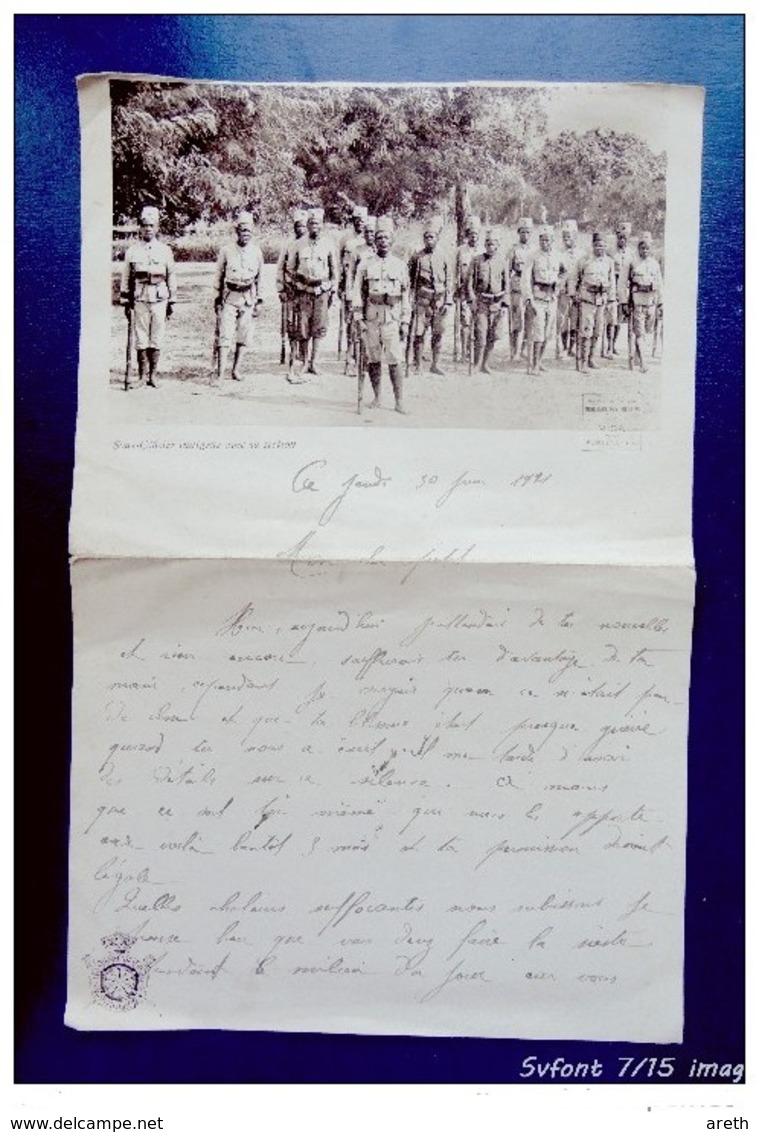 Sous-Officier indigène avec sa section
Ce jeudi 30 juin 1921
Mon cher petit
Hier, aujourd'hui j'attendais de tes nouvelles
et rien encore, souffrirais tu d'avantage de ta
main, cependant je croyais que ce n'était pas
de chose et que ta blessure était presque guérie
quand tu nous a écrit. Il me tarde d'avoir
des détails sur ce silence. à moins
que ce soit toi même qui nous les apporte
car voilà bientôt 3 mois et ta permission devient
légale
Quelles chaleurs suffocantes nous subissons je
pense bien que vous devez faire la sieste
pendant le milieu du jour car vous
Svfont 7/15 imag
www.delcampe.net
areth